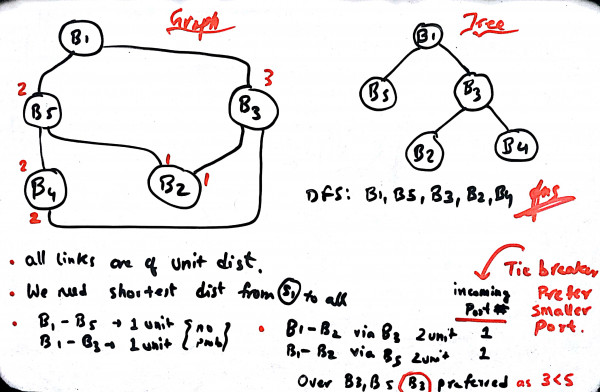 Graph
B1
2
B5
3
B3
2
B4
2
1
B2
1
Tree
B1
B5
B3
B2
B4
DFS: B1, B5, B3, B2, B4 Ans
• all links are of unit dist.
• We need shortest dist from S1 to all
• B1 - B5 → 1 unit
B1 - B3 → 1 unit
{ no prob }
Tie breaker
Prefer
smaller
Port.
incoming
Port #
• B1 - B2 via B3 2 unit 1
B1 - B2 via B5 2 unit 1
Over B3, B5 B3 preferred as 3<5